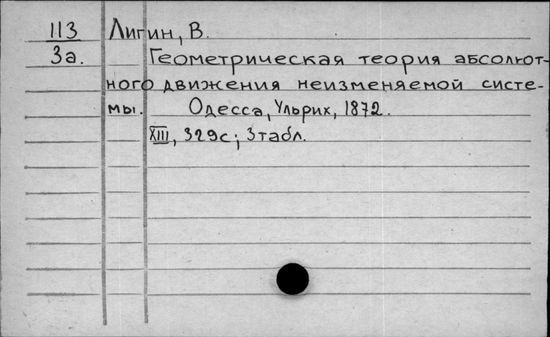 113 Лигин, В.
3а. Геометрическая теория абсолют-
ного движения неизменяемой систе-
мы. Одесса, Ульрих, 1872.
XIII, 329с; 3табл.